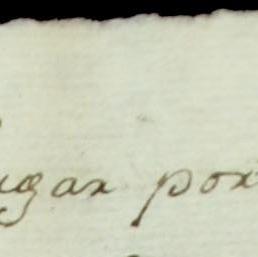 ugar por